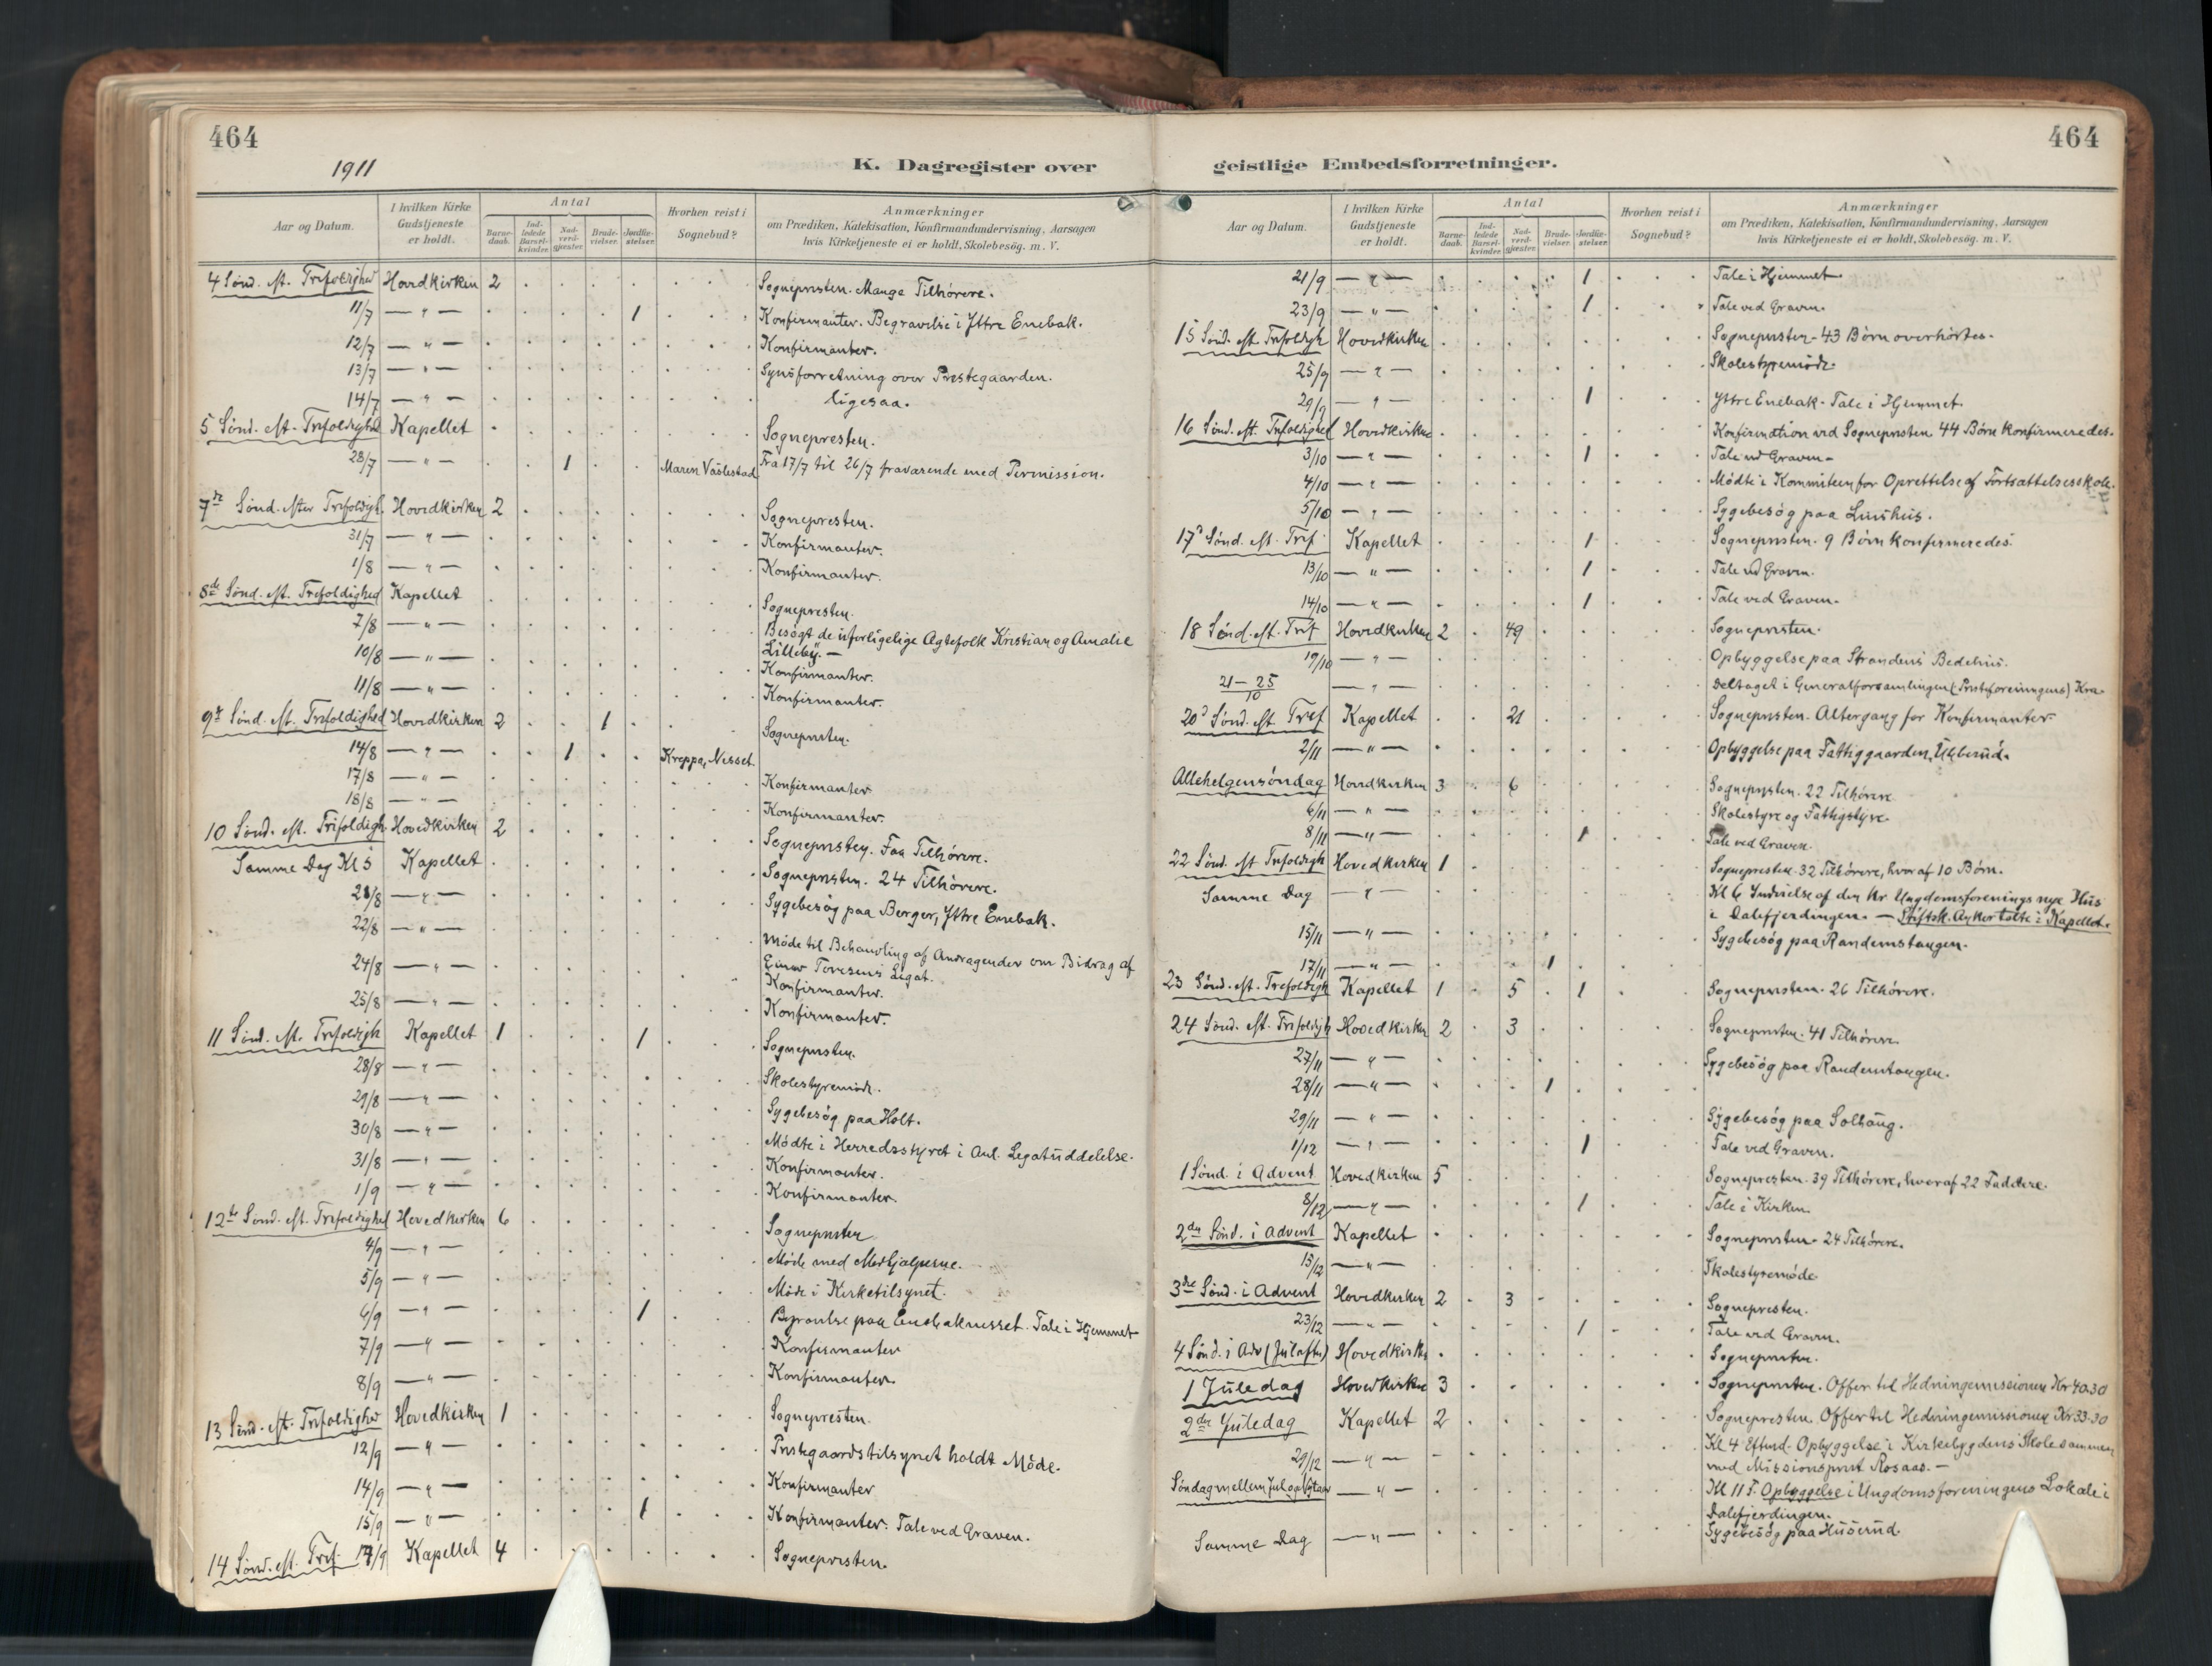 464
1911
K. Dagregister over
Aar og Datum. I hvilken Kirke Gudstjeneste er holdt. Antal Barnedaab. Indledede Barselkvinder. Nadverdgjæster. Brudevielser. Jordfæstelser. Hvorhen reist i Sognebud? Anmærkninger om Prædiken, Katekisation, Konfirmandundervisning, Aarsagen hvis Kirketjeneste ei er holdt, Skolebesög. m. V.
4 Sönd. eft. Trefoldighed Hovedkirken 2 . . . . . Sognepresten. Mange Tilhörere.
11/7 — " — . . . . 1 . Konfirmanter. Begravelse i Ytre Enebak.
12/7 — " — . . . . . . Konfirmanter.
13/7 — " — . . . . . . Synsforretning over Prestegaarden.
14/7 — " — . . . . . . ligesaa.
5 Sönd. eft. Trefoldighed Kapellet . . . . . . Sognepresten.
28/7 — " — . . 1 . . Maren Våslestad Fra 17/7 til 26/7 fraværende med Permission.
7de Sönd. efter Trefoldigh. Hovedkirken 2 . . . . . Sognepresten.
31/7 — " — . . . . . . Konfirmanter.
1/8 — " — . . . . . . Konfirmanter.
8de Sönd. eft. Trefoldighed Kapellet . . . . . . Sognepresten.
7/8 — " — . . . . . . Besögt de uforligelige Ægtefolk Kristian og Amalie
Lilleby. —
10/8 — " — . . . . . . Konfirmanter.
11/8 — " — . . . . . . Konfirmanter.
9de Sönd. eft. Trefoldighed Hovedkirken 2 . . 1 . . Sognepresten.
14/8 — " — . . 1 . . Kreppa, Nesset
17/8 — " — . . . . . . Konfirmanter
18/8 — " — . . . . . . Konfirmanter.
10 Sönd. eft. Trefoldigh. Hovedkirken 2 . . . . . Sognepresten. Faa Tilhörere.
Samme Dag Kl 5 Kapellet . . . . . . Sognepresten. 24 Tilhörere.
21/8 — " — . . . . . . Sygebesög paa Berger, Ytre Enebak.
22/8 — " — . . . . . . Möde til Behandling af Andragender om Bidrag af
Einar Toresens Legat.
24/8 — " — . . . . . . Konfirmanter.
25/8 — " — . . . . . . Konfirmanter.
11 Sönd. eft. Trefoldigh Kapellet 1 . . . 1 . Sognepresten.
28/8 — " — . . . . . . Skolestyremöde.
29/8 — " — . . . . . . Sygebesög paa Holt.
30/8 — " — . . . . . . Mödte i Herredsstyret i Anl. Legatuddelelse.
31/8 — " — . . . . . . Konfirmanter.
1/9 — " — . . . . . . Konfirmanter.
12te Sönd. eft. Trefoldighed Hovedkirken 6 . . . . . Sognepresten
4/9 — " — . . . . . . Möde med Medhjælperne.
5/9 — " — . . . . . . Möde i Kirketilsynet.
6/9 — " — . . . . 1 . Begravelse paa Enebaknesset. Tale i Hjemmet
7/9 — " — . . . . . . Konfirmanter
8/9 — " — . . . . . . Konfirmanter.
13 Sönd. eft. Trefoldighed Hovedkirken 1 . . . . . Sognepresten.
12/9 — " — . . . . . . Prestegaardstilsynet holdt Möde.
14/9 — " — . . . . . . Konfirmanter
15/9 — " — . . . . 1 . Konfirmanter. Tale ved Graven.
14 Sönd. eft. Tref. 17/9 Kapellet 4 . . . . . Sognepresten.
464
geistlige Embedsforretninger.
Aar og Datum. I hvilken Kirke Gudstjeneste er holdt. Antal Barnedaab. Indledede Barselkvinder. Nadverdgjæster. Brudevielser. Jordfæstelser. Hvorhen reist i Sognebud? Anmærkninger om Prædiken, Katekisation, Konfirmandundervisning, Aarsagen hvis Kirketjeneste ei er holdt, Skolebesög. m. V.
21/9 — " — . . . . 1 . Tale i Hjemmet.
23/9 — " — . . . . 1 . Tale ved Graven.
15 Sönd. eft. Trefoldigh Hovedkirken . . . . . . Sognepresten - 43 Börn overhörtes.
25/9 — " — . . . . . . Skolestyremöde.
29/9 — " — . . . . 1 . Ytre Enebak. Tale i Hjemmet.
16 Sönd. eft. Trefoldighed Hovedkirken . . . . . . Konfirmation ved Sognepresten 44 Börn konfirmeredes.
3/10 — " — . . . . 1 . Tale ved Graven -
4/10 — " — . . . . . . Mödte i Kommiteen for Oprettelse af Fortsættelsesskole.
5/10 — " — . . . . . . Sygebesög paa Linshus.
17d Sönd. eft. Tref. Kapellet . . . . 1 . Sognepresten. 9 Börn konfirmeredes.
13/10 — " — . . . . 1 . Tale ved Graven.
14/10 — " — . . . . 1 . Tale ved Graven.
18 Sönd. eft. Tref Hovedkirken 2 . 49 . . . Sognepresten.
19/10 — " — . . . . . . Opbyggelse paa Strandens Bedehus.
21 - 25/10 — " — . . . . . . Deltaget i Generalforsamlingen (Presteforeningens) Kra.
20d Sönd. eft Tref Kapellet . . 21 . . . Sognepresten. Altergang for Konfirmanter.
2/11 — " — . . . . . . Opbyggelse paa Fattiggaarden, Ubberud.
Allehelgensöndag Hovedkirken 3 . 6 . . . Sognepresten. 22 Tilhörere
6/11 — " — . . . . . . Skolestyre og Fattigstyre.
8/11 — " — . . . . 1 . Tale ved Graven.
22 Sönd. eft Trefoldigh Hovedkirken 1 . . . . . Sognepresten. 32 Tilhörere, hvoraf 10 Börn.
Samme Dag — " — . . . . . . Kl 6 Indvielse af den Kr. Ungdomsforenings nye Hus
i Dalefjerdingen. — Stiftsk. Anker talte i Kapellet.
15/11 — " — . . . . . . Sygebesög paa Randemstangen.
17/11 — " — . . . 1 . .
23 Sönd. eft. Trefoldigh Kapellet 1 . 5 . 1 . Sognepresten. 26 Tilhörere.
24 Sönd. eft. Trefoldigh Hovedkirken 2 . 3 . . . Sognepresten. 41 Tilhörere.
27/11 — " — . . . . . . Sygebesög paa Randemtangen.
28/11 — " — . . . 1 . .
29/11 — " — . . . . . . Sygebesög paa Solhaug.
1/12 — " — . . . . 1 . Tale ved Graven.
1 Sönd. i Advent Hovedkirken 5 . . . . . Sognepresten. 39 Tilhörere, hvoraf 22 Faddere.
8/12 — " — . . . . 1 . Tale i Kirken.
2den Sönd. i Advent Kapellet . . . . . . Sognepresten - 24 Tilhörere.
15/12 — " — . . . . . . Skolestyremöde
3die Sönd. i Advent Hovedkirken 2 . 3 . . . Sognepresten.
23/12 — " — . . . . 1 . Tale ved Graven.
4 Sönd. i Adv (Juleaften) Hovedkirke . . . . . . Sognepresten.
1 Juledag Hovedkirken 3 . . . . . Sognepresten. Offer til Hedningemissionen Kr 40.30
2den Juledag Kapellet 2 . . . . . Sognepresten. Offer til Hedningemissionen Kr 33.30
29/12 — " — . . . . . . Kl 4 Efterm. Opbyggelse i Kirkebygdens Skole sammen
med Missionsprest Rosaas. —
Söndag mellem Jul og Nytaar — " — . . . . . . Kl 11 F. Opbyggelse i Ungdomsforeningens Lokale i
Dalefjerdingen.
Samme Dag — " — . . . . . . Sygebesög paa Huserud.